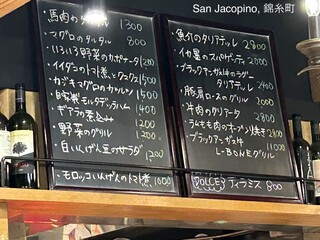 San Jacopino, 錦糸町
・馬肉のタルタル 1300
・マグロのタルタル 800
・いろいろ野菜のカポナータ 1200
・イイダコのトマト煮とクスクス 1500
・カジキマグロのカツレツ 1500
・豚製モルタデッラハム 1400
・ギアラの煮込み 1200
・野菜のグリル
・白いんげん豆のサラダ 1200
・モロッコいんげんのトマト煮 1000
・魚介のタリアテッレ 2800
・イカ墨のスパゲッティ 2800
・ブラックアンガス牛のラグー
タリアテッレ 2400
・豚肩ロースのグリル 2000
・牛肉のタリアータ 2800
・ラムもも肉のオーブン焼き 2800
・ブラックアンガス牛 11000
L-BONEグリル
DOLCE ティラミス 800